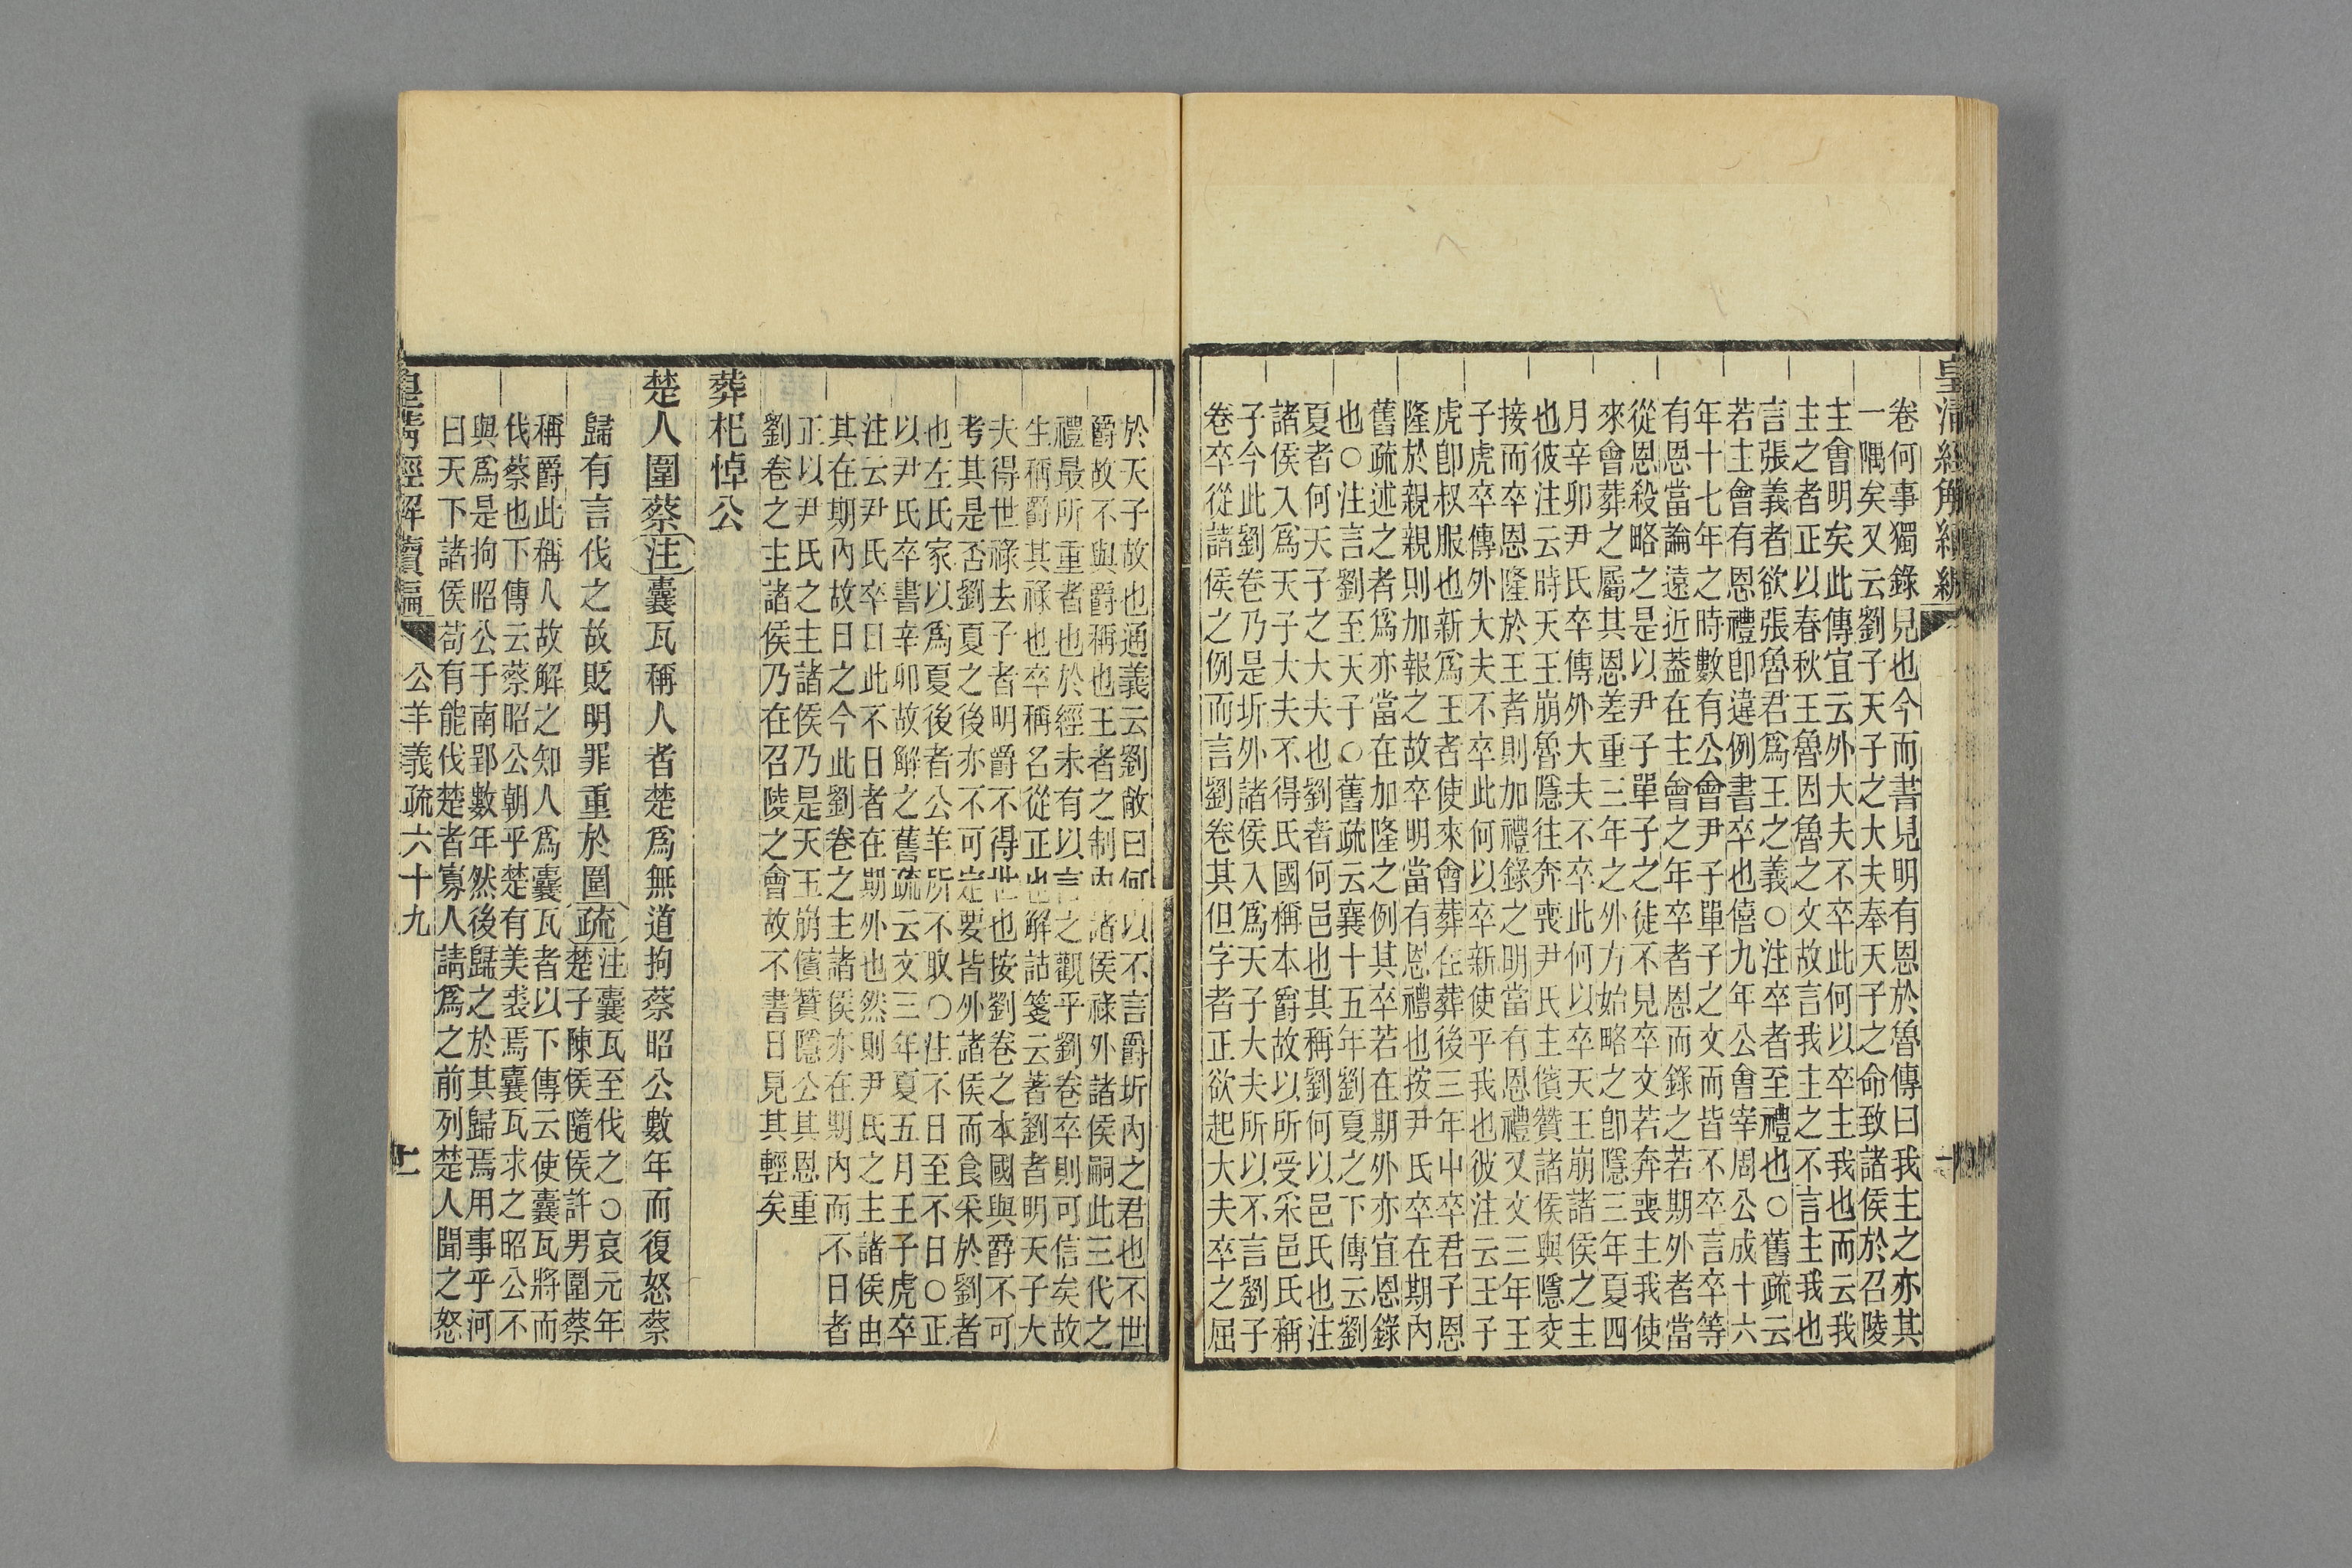 皇清經解續編
卷何事獨錄見也今而書見明有恩於魯傳曰我主之亦其
一隅矣又云劉子天子之大夫奉天子之命致諸侯於召陵
主會明矣此傳宜云外大夫不卒此何以卒主我也而云我
主之者正以春秋王魯因魯之文故言我主之不言主我也
言張義者欲張魯君爲王之義○注卒者至禮也○舊疏云
若主會有恩禮卽違例書卒也僖九年公會宰周公成十六
年十七年之時數有公會尹子單子之文而皆不卒言卒等
有恩當論遠近葢在主會之年卒者恩而錄之若期外者當
從恩殺略之是以尹子單子之徒不見卒文若奔喪主我使
來會葬之屬其恩差重三年之外方始略之卽隱三年夏四
月辛卯尹氏卒傳外大夫不卒此何以卒天王崩諸侯之主
也彼注云時天王崩魯隱往奔喪尹氏主儐贊諸侯與隱交
接而卒恩隆於王者則加禮錄之明當有恩禮又文三年王
子虎卒傳外大夫不卒此何以卒新使乎我也彼注云王子
虎卽叔服也新爲王者使來會葬在葬後三年中卒君子恩
隆於親親則加報之故卒明當有恩禮也按尹氏卒在期內
舊疏述之者爲亦當在加隆之例其卒若在期外亦宜恩錄
也○注言劉至天子○舊疏云襄十五年劉夏之下傳云劉
夏者何天子之大夫也劉者何邑也其稱劉何以邑氏也注
諸侯入爲天子大夫不得氏國稱本爵故以所受采邑氏稱
子今此劉卷乃是圻外諸侯入爲天子大夫所以不言劉子
卷卒從諸侯之例而言劉卷其但字者正欲起大夫卒之屈
於天子故也通義云劉敞曰何以不言爵圻內之君也不世
爵故不與爵稱也王者之制內諸侯祿外諸侯嗣此三代之
禮最所重者也於經未有以言之觀乎劉卷卒則可信矣故
生稱爵其祿也卒稱名從正也解詁箋云著劉者明天子大
夫得世祿去子者明爵不得世也按劉卷之本國與爵不可
考其是否劉夏之後亦不可定要皆外諸侯而食采於劉者
也左氏家以爲夏後者公羊所不取○注不日至不日○正
以尹氏卒書辛卯故解之舊疏云文三年夏五月王子虎卒
注云尹氏卒日此不日者在期外也然則尹氏之主諸侯由
其在期內故日之今此劉卷之主諸侯亦在期內而不日者
正以尹氏之主諸侯乃是天王崩儐贊隱公其恩重
劉卷之主諸侯乃在召陵之會故不書日見其輕矣
葬杞悼公
楚人圍蔡注囊瓦稱人者楚爲無道拘蔡昭公數年而復怒蔡
歸有言伐之故貶明罪重於圍疏注囊瓦至伐之○哀元年
楚子陳侯隨侯許男圍蔡
稱爵此稱人故解之知人爲囊瓦者以下傳云使囊瓦將而
伐蔡也下傳云蔡昭公朝乎楚有美裘焉囊瓦求之昭公不
與爲是拘昭公于南郢數年然後歸之於其歸焉用事乎河
曰天下諸侯苟有能伐楚者寡人請爲之前列楚人聞之怒
皇清經解續編 公羊義疏六十九